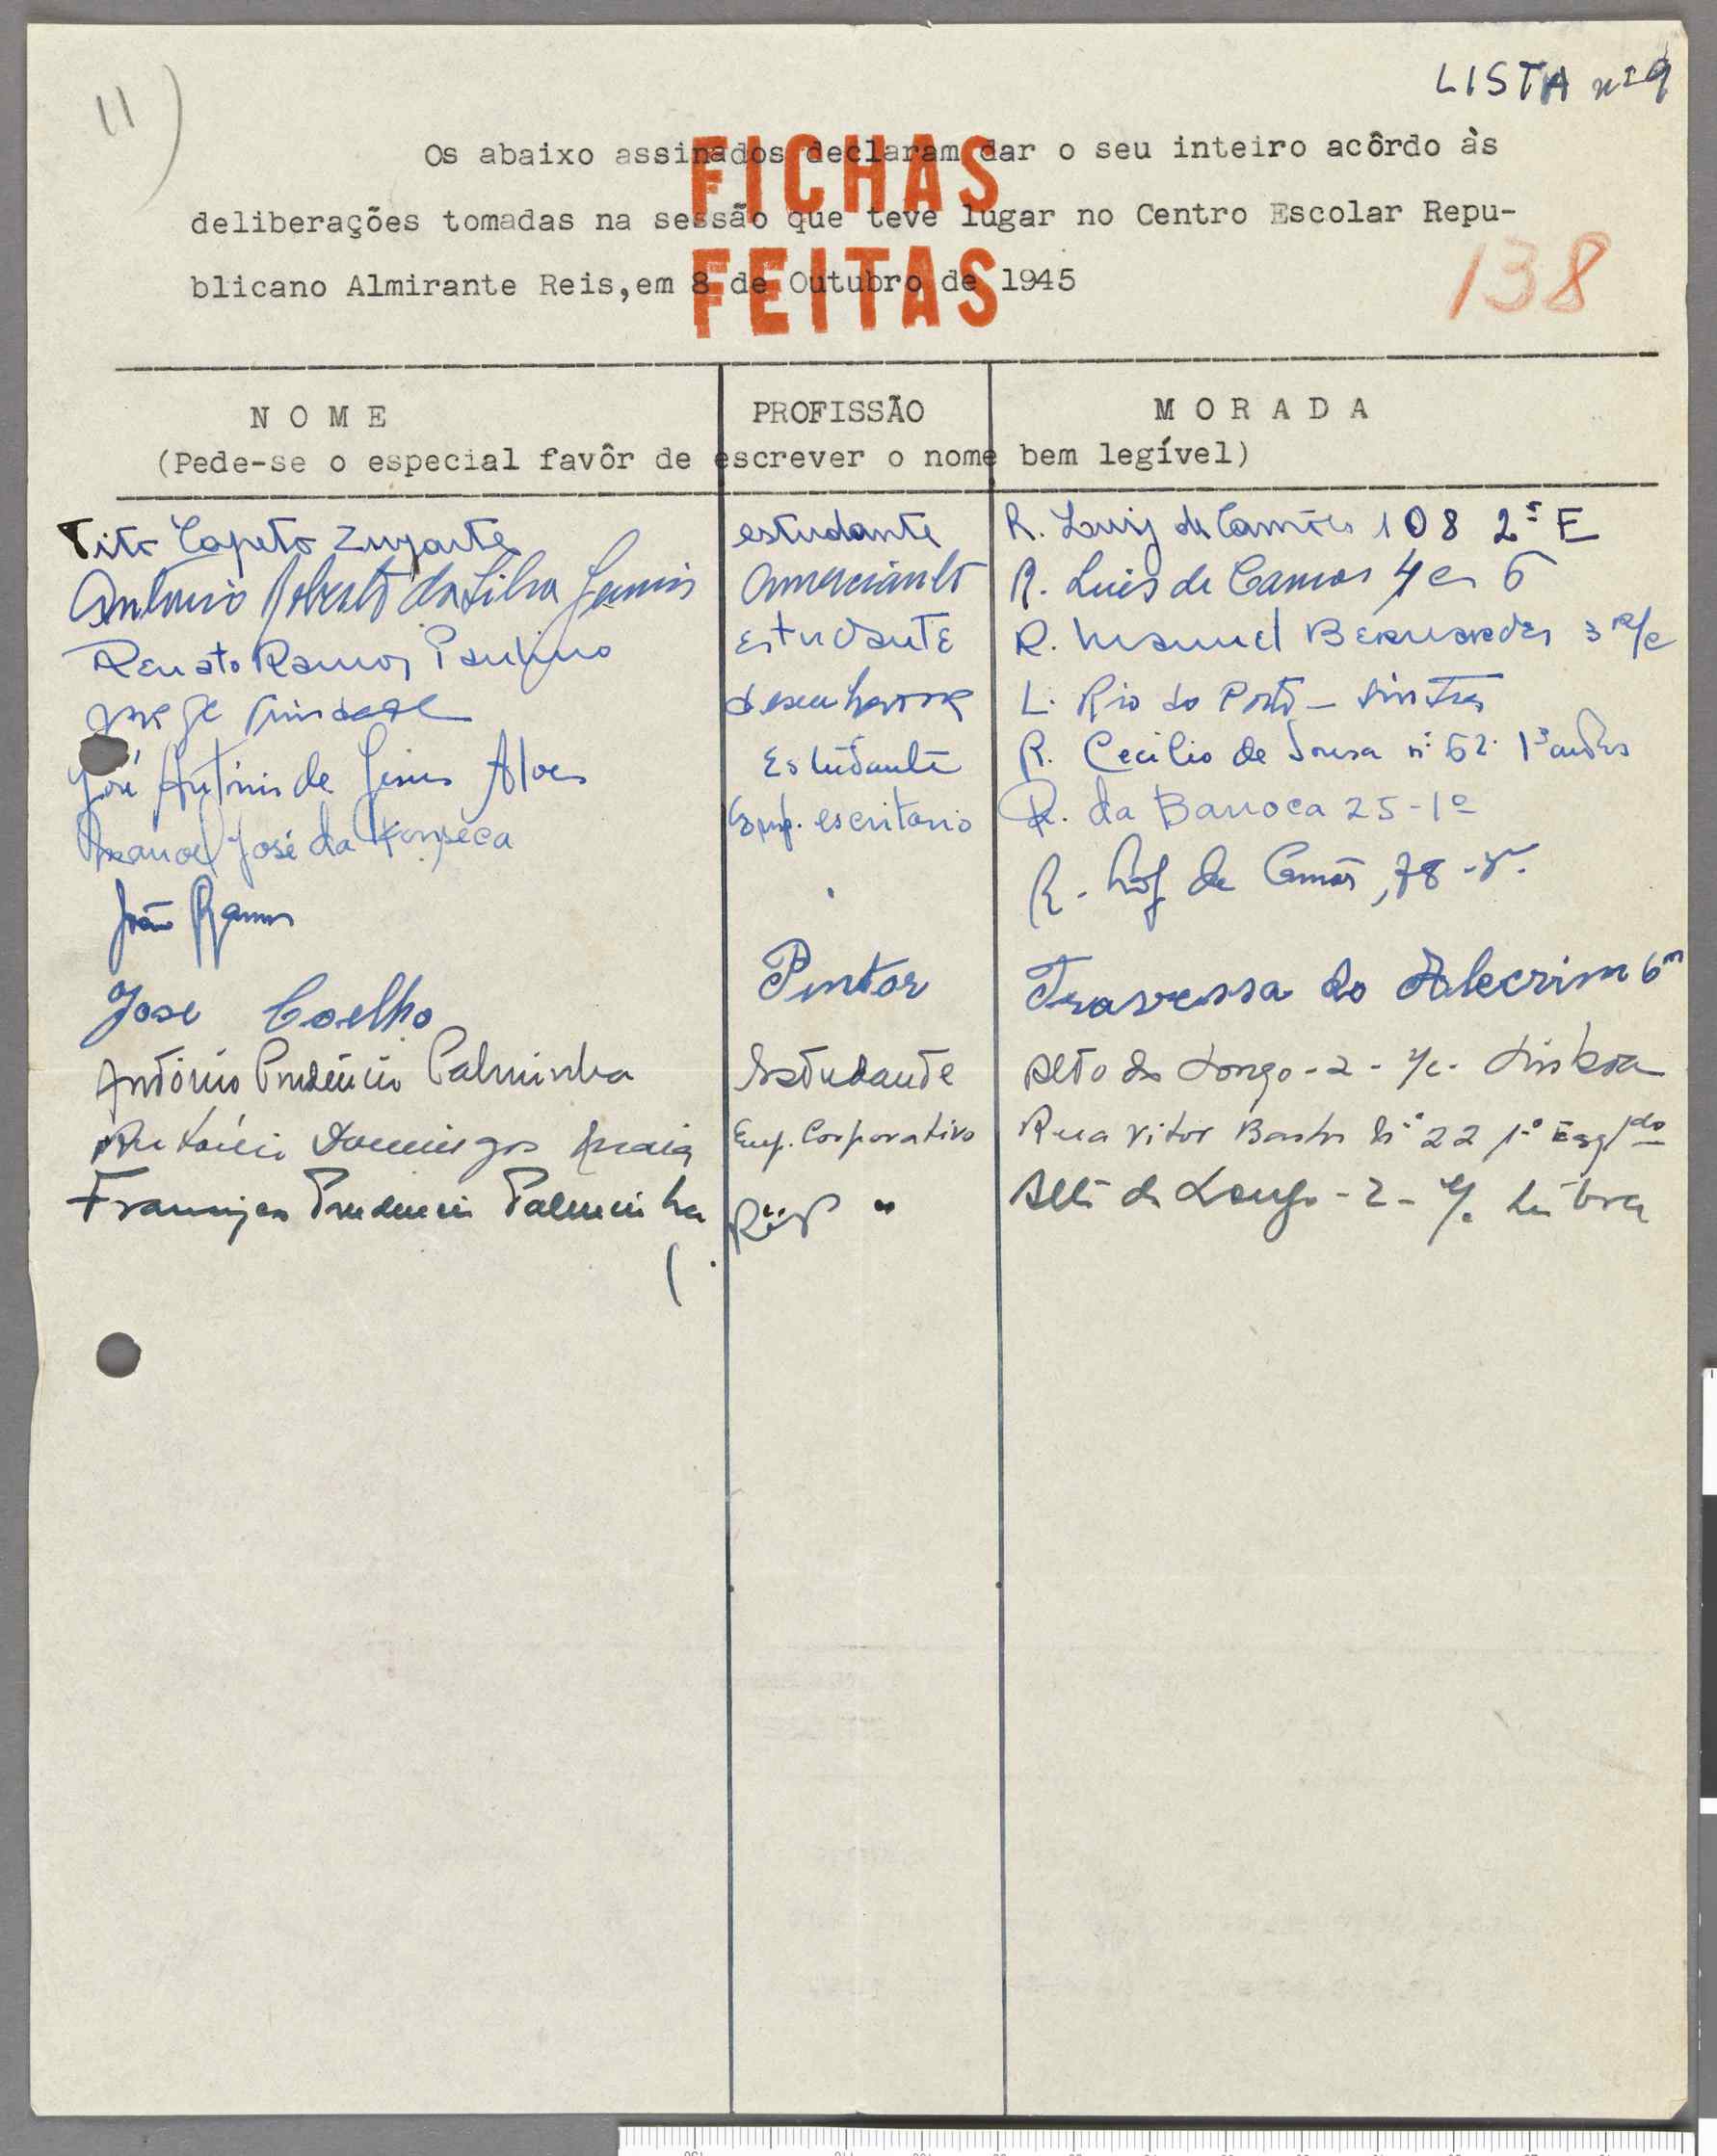 11)
LISTA nº 9
Os abaixo assinados declaram dar o seu inteiro acôrdo às
deliberações tomadas na sessão que teve lugar no Centro Escolar Repu-
blicano Almirante Reis,em 8 de Outubro de 1945
FICHAS
FEITAS
138
N O M E PROFISSÃO M O R A D A
(Pede-se o especial favôr de escrever o nome bem legível)
Tito Capeto Zuzarte estudante R. Luiz de Camões 108 2º E
António Roberto da Silva comerciante R. Luis de Camões 4 6
Renato Ramos Paulino Estudante R. Manuel Bernardes 3 R/c
Jorge Trindade desenhador L. Rio do Porto - Sintra
José António de Jesus Alves Estudante R. Cecilio de Sousa nº 62 1º andar
Manoel José da Fonseca Emp. escritorio R. da Barroca 25-1º
João Ramos R. de Camões, 78
José Coelho Pintor Travessa do Alecrim 6
António Prudêncio Palminha Estudante Alto do Longo - 2 - r/c - Lisboa
António Domingos Maia Emp. Corporativo Rua Vitor Bastos Nº 22 1º Esqdo
Francisco Prudencio Palminha " " Alto do Longo - 2 - r/c Lisboa